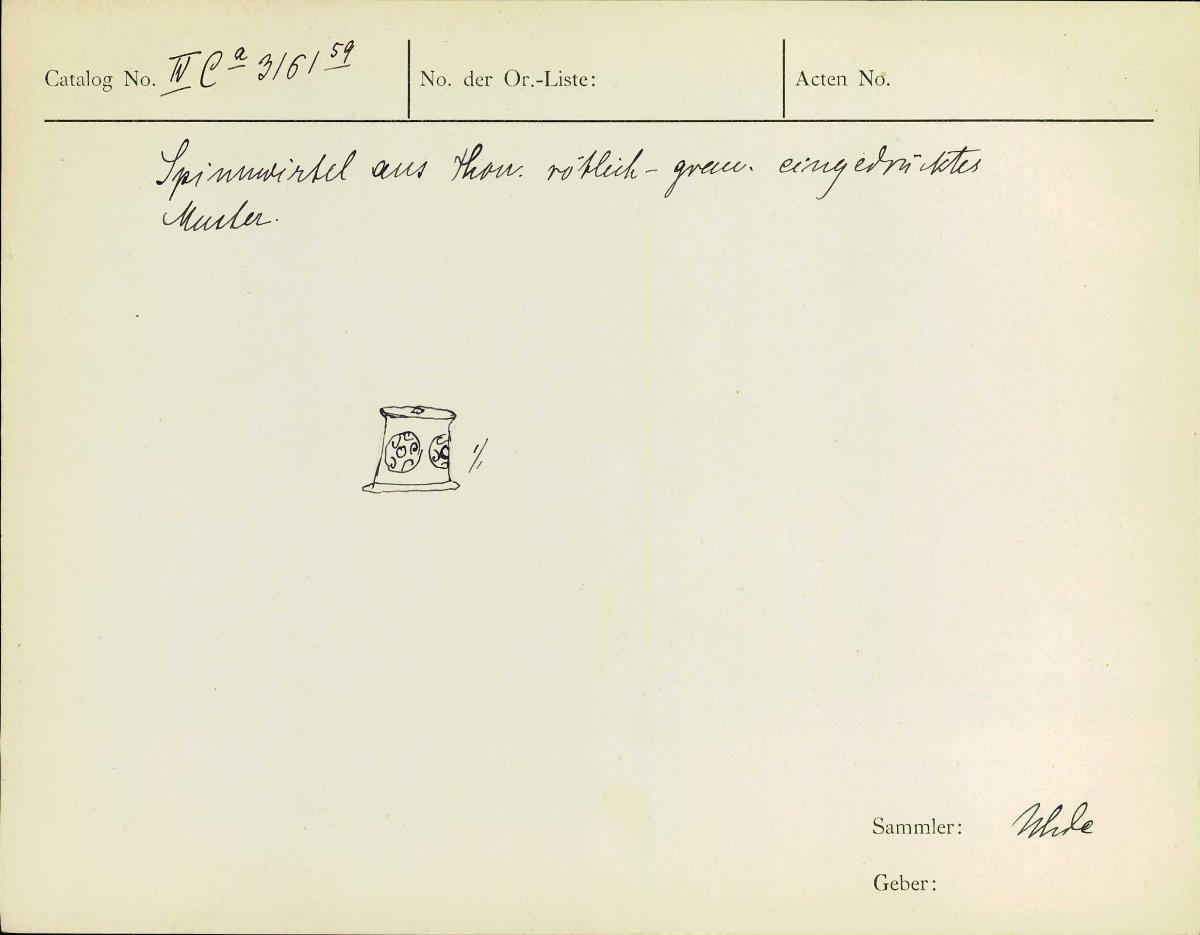 Catalog No. IV Ca 3161 59
No. der Or.-Liste:
Acten No.
Spinnwirtel aus Thon. rötlich-grau. eingedrücktes
Muster.
1/1
Sammler: Uhde
Geber: